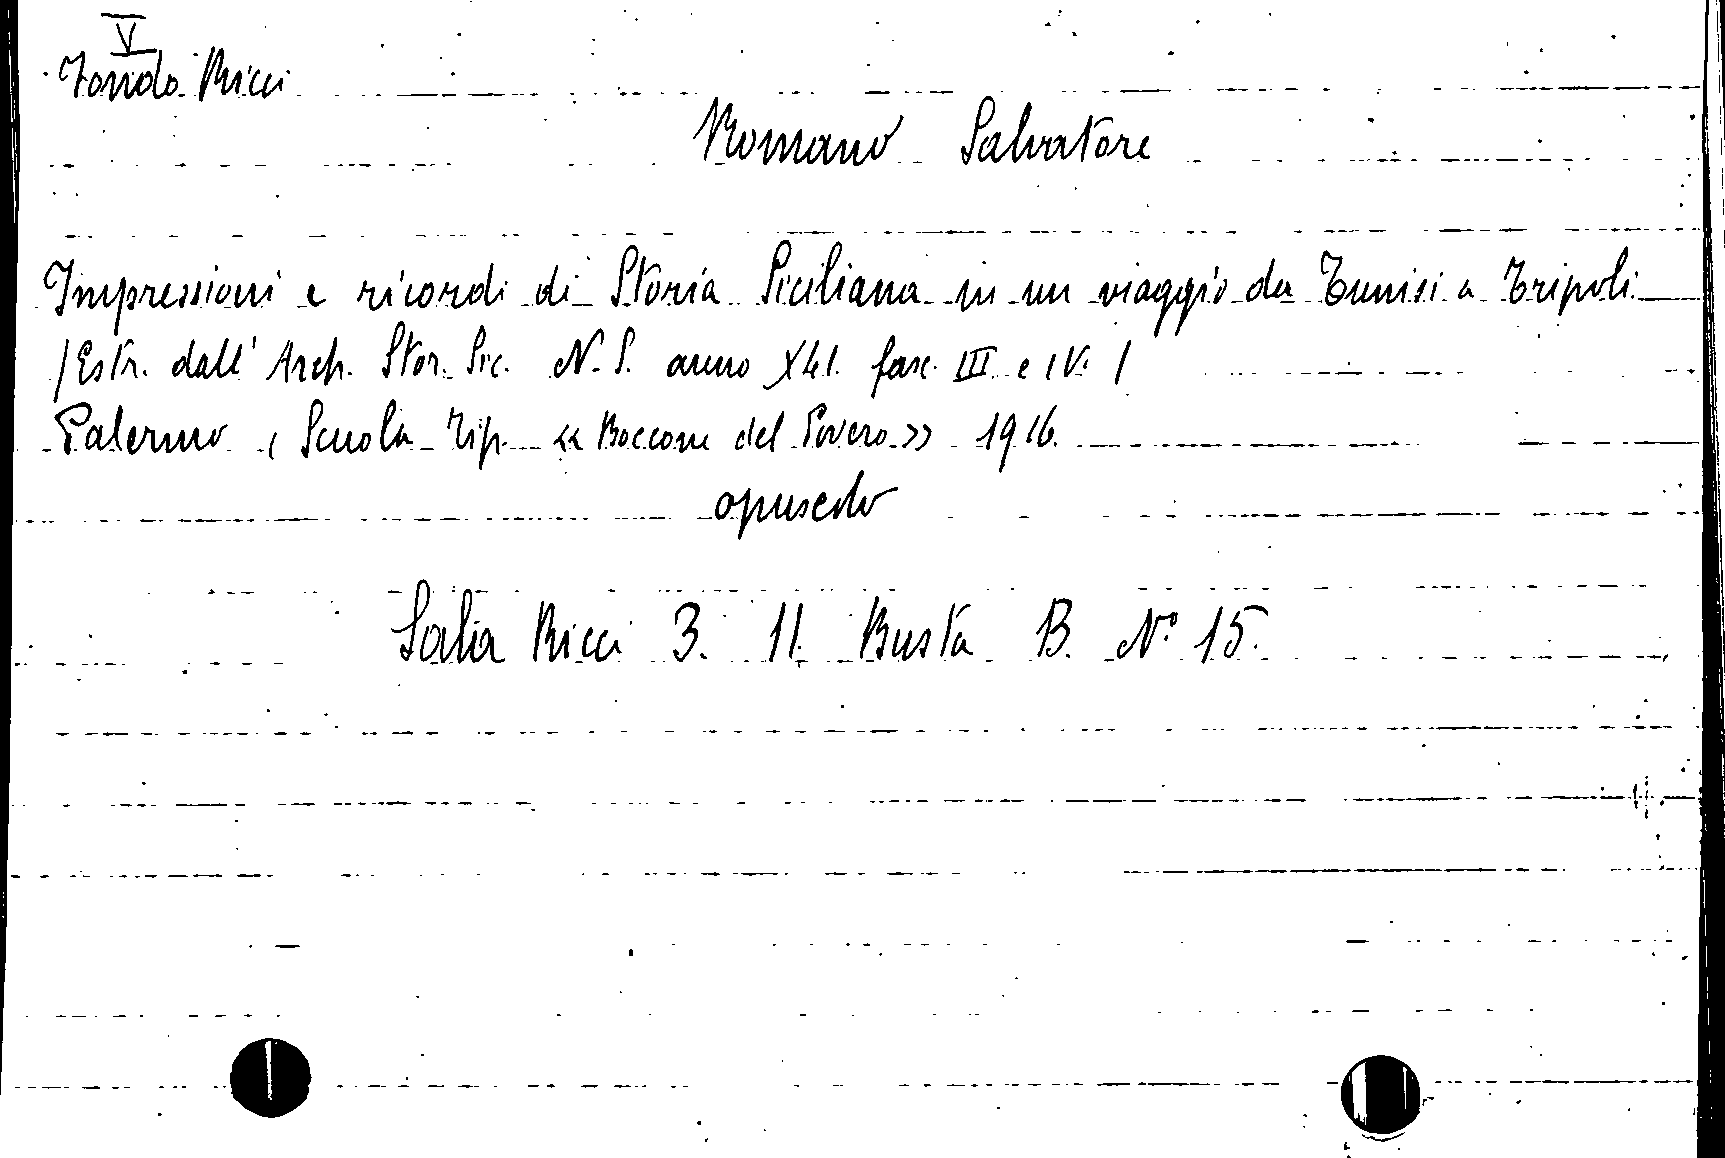 V
Fondo Ricci
Romano Salvatore
Impressioni e ricordi di Storia Siciliana in un viaggio da Tunisi a Tripoli
/Estr. dall' Arch. Stor. Sic. N. S. anno XLI. fasc. III e IV. /
Palermo, Scuola Tip. «Boccone del Povero» 1916.
opuscolo
Sala Ricci 3. 11. Busta B. N° 15.